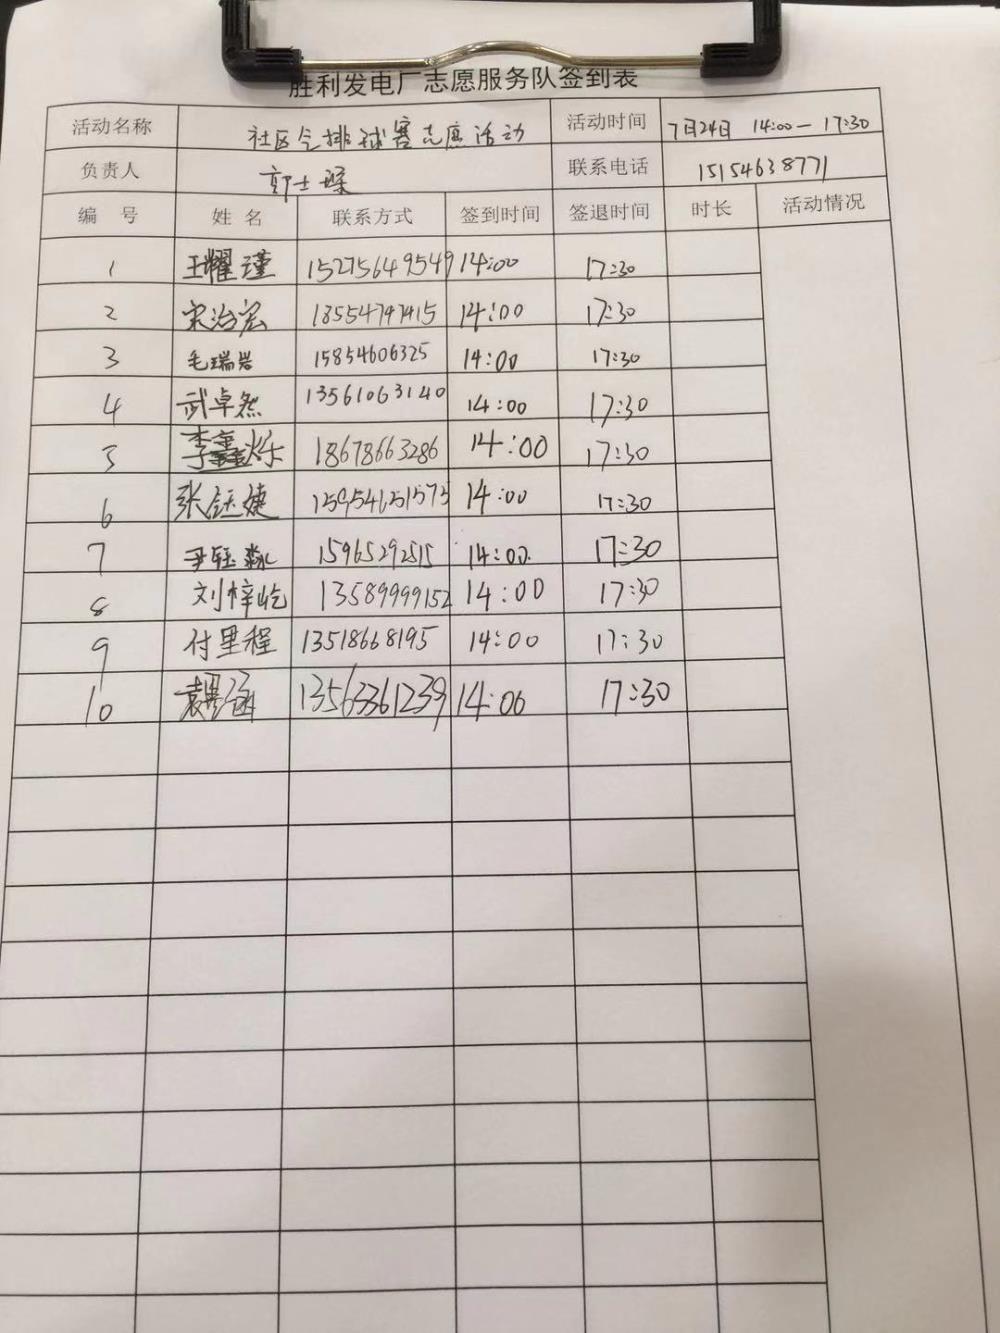 胜利发电厂志愿服务队签到表
活动名称 社区气排球赛志愿活动 活动时间 7月24日 14:00—17:30
负责人 郭士琛 联系电话 15154638771
编 号 姓 名 联系方式 签到时间 签退时间 时长 活动情况
1 王耀瑾 15275649549 14:00 17:30
2 宋治宏 18554747415 14:00 17:30
3 毛瑞岩 15854606325 14:00 17:30
4 武卓然 13561063140 14:00 17:30
5 李鑫烁 18678663286 14:00 17:30
6 张钰婕 15954651573 14:00 17:30
7 尹钰淼 15965292515 14:00 17:30
8 刘梓屹 13589999152 14:00 17:30
9 付里程 13518668195 14:00 17:30
10 13563361239 14:00 17:30